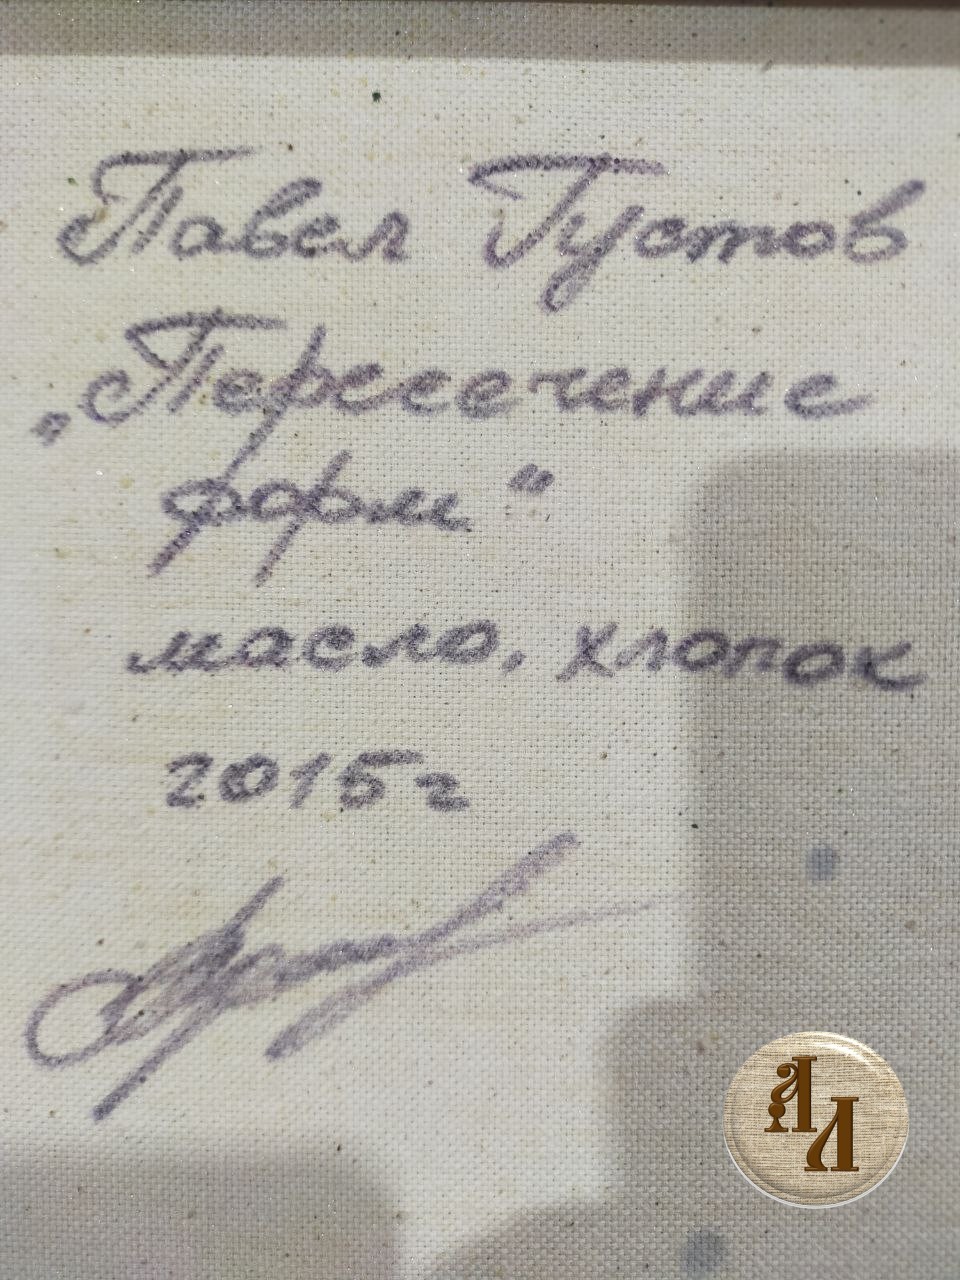 Павел Густов
„Пересечение
форм“
масло, хлопок
2015г
АЛ